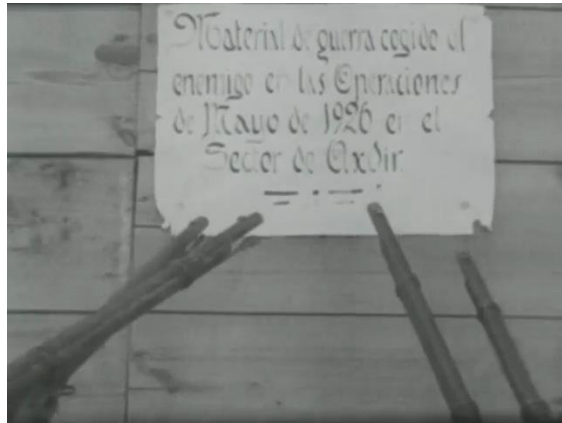 Material de guerra cogido al
enemigo en las Operaciones
de Mayo de 1926 en el
Sector de Axdir.